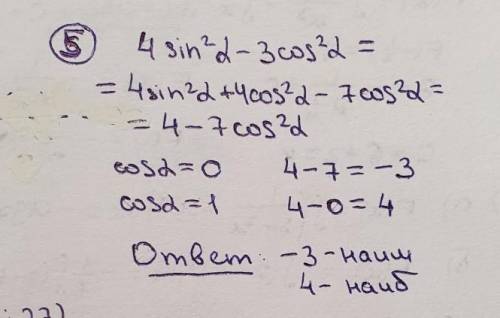 5 4 sin²α - 3cos²α =
= 4sin²α + 4cos²α - 7cos²α =
= 4 - 7cos²α
cosα = 0 4 - 7 = -3
cosα = 1 4 - 0 = 4
Ответ: -3 - наим
4 - наиб